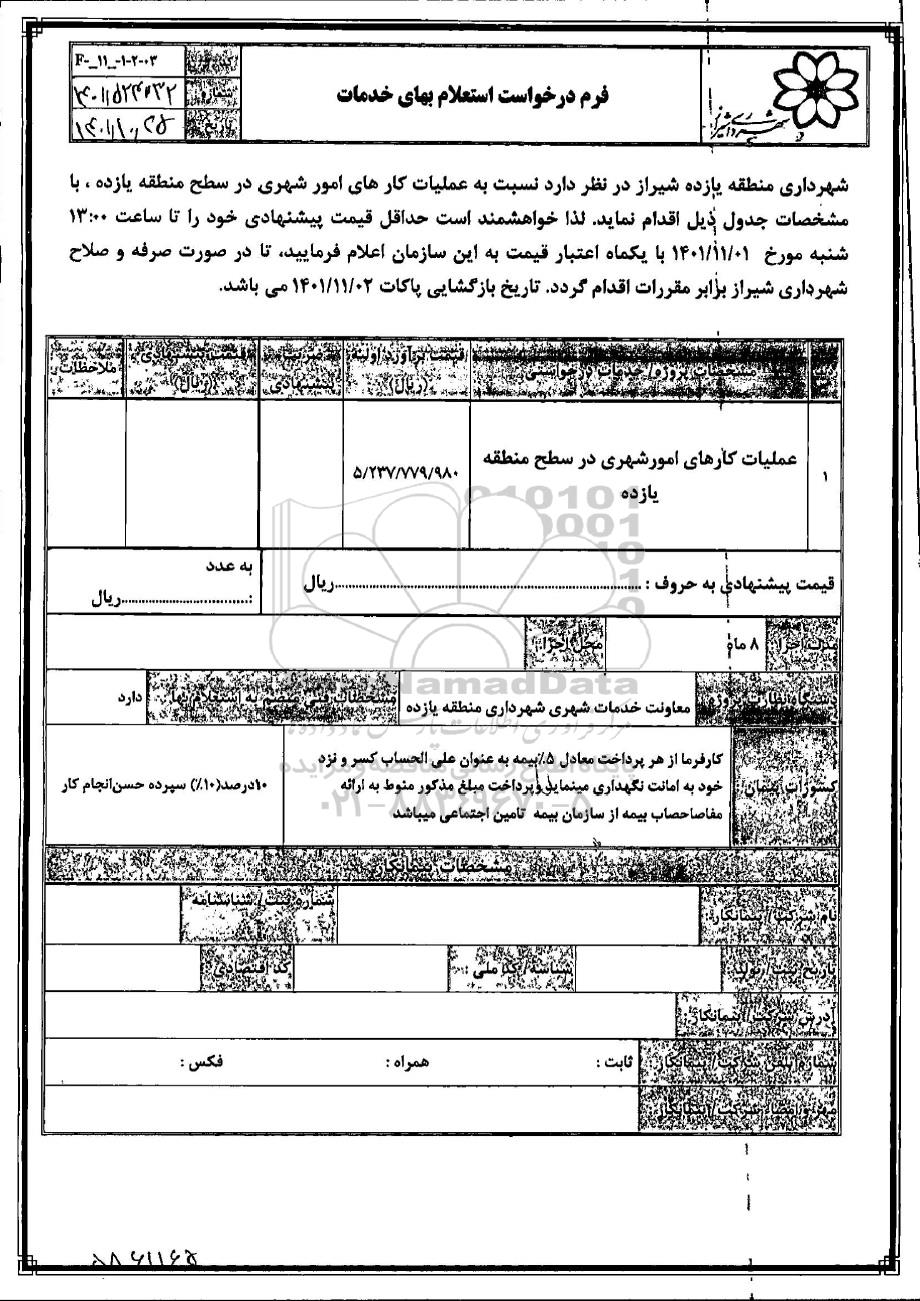 F-_۱۱_-۱-۲-۰۳
شماره
تاریخ
فرم درخواست استعلام بهای خدمات
شهرداری منطقه یازده شیراز در نظر دارد نسبت به عملیات کار های امور شهری در سطح منطقه یازده ، با
مشخصات جدول ذیل اقدام نماید. لذا خواهشمند است حداقل قیمت پیشنهادی خود را تا ساعت ۱۳:۰۰
شنبه مورخ ۱۴۰۱/۱۱/۰۱ با یکماه اعتبار قیمت به این سازمان اعلام فرمایید، تا در صورت صرفه و صلاح
شهرداری شیراز برابر مقررات اقدام گردد. تاریخ بازگشایی پاکات ۱۴۰۱/۱۱/۰۲ می باشد.
مشخصات پروژه/ خدمات درخواستی
قیمت برآورد اولیه (ریال)
ضریب پیشنهادی
قیمت پیشنهادی (ریال)
ملاحظات
۱
عملیات کارهای امورشهری در سطح منطقه
یازده
۵/۲۳۷/۷۷۹/۹۸۰
قیمت پیشنهادی به حروف : ..........ریال
به عدد
:..........ریال
مدت اجرا
۸ ماه
محل اجرا
دستگاه نظارت پروژه
معاونت خدمات شهری شهرداری منطقه یازده
دارد
کسورات پیمان
کارفرما از هر پرداخت معادل ۵٪بیمه به عنوان علی الحساب کسر و نزد
خود به امانت نگهداری مینماید و پرداخت مبلغ مذکور منوط به ارائه
مفاصاحساب بیمه از سازمان بیمه تامین اجتماعی میباشد
۱۰درصد(۱۰٪) سپرده حسن‌انجام کار
مشخصات پیمانکار
نام شرکت/ پیمانکار
شماره ثبت/ شناسنامه
تاریخ ثبت/ تولد
شناسه/ کد ملی :
کد اقتصادی
آدرس شرکت/ پیمانکار
شماره تلفن شرکت/ پیمانکار
ثابت :
همراه :
فکس :
مهر و امضاء شرکت/ پیمانکار